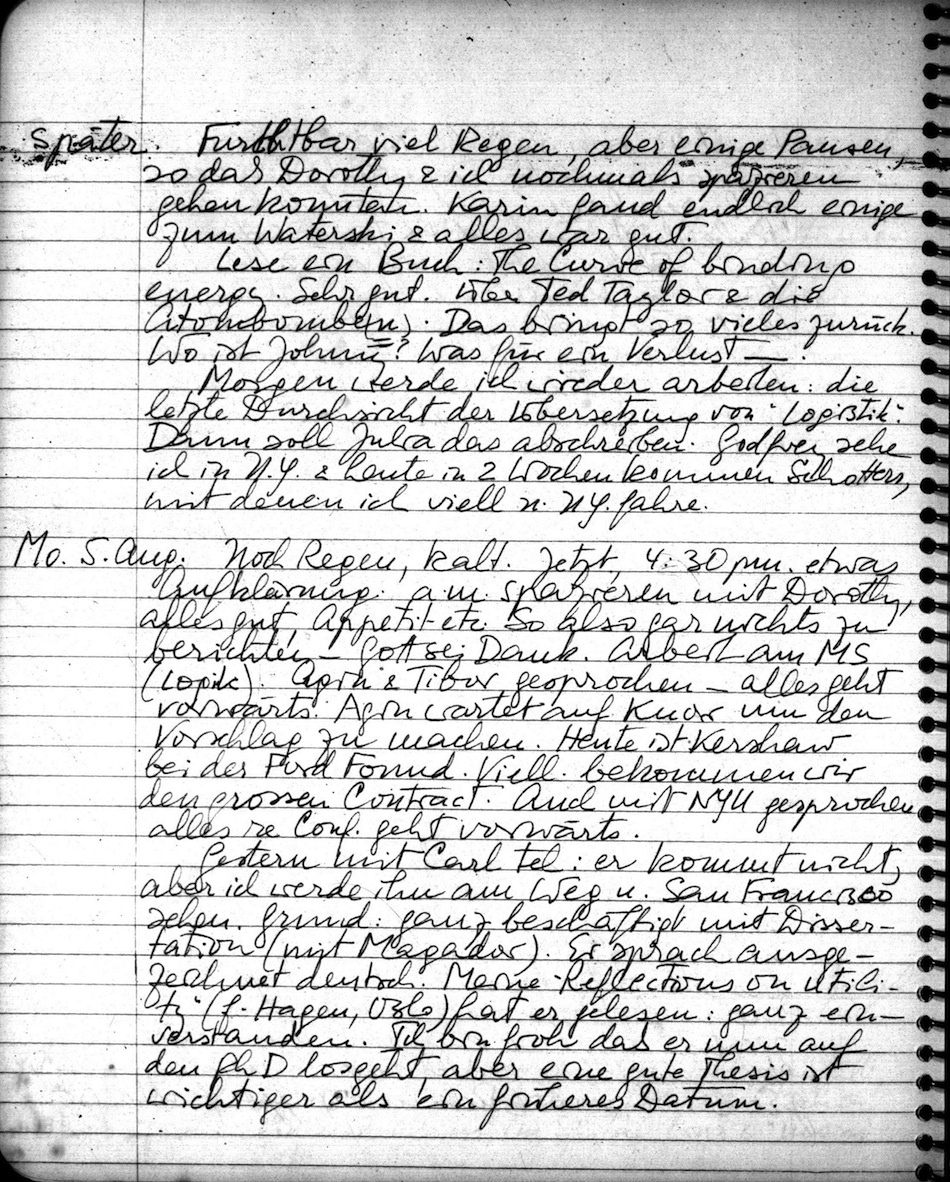 später. Furchtbar viel Regen, aber einige Pausen,
so das Dorothy & ich nochmals spazieren
gehen konnten. Karin fand endlich einige
zum Waterski & alles war gut.
Lese ein Buch: The Curve of binding
energy. Sehr gut. Über Ted Taylor & die
Atombombe(n). Das bringt so vieles zurück.
Wo ist Johnny? Was für ein Verlust —.
Morgen werde ich wieder arbeiten: die
letzte Durchsicht der Übersetzung von "Logistik".
Dann soll Julia das abschreiben. Godfrey sehe
ich in N.Y. & heute in 2 Wochen kommen Schotters,
mit denen ich viell n. N.Y. fahre.
Mo. 5. Aug. Noch Regen, kalt. Jetzt, 4:30 pm. etwas
Aufklärung. a.m. spazieren mit Dorothy,
alles gut, Appetit etc. So also gar nichts zu
berichten — Gott sei Dank. Arbeit am MS
(Logik). Agin & Tibor gesprochen — alles geht
vorwärts. Agin wartet auf Knorr um den
Vorschlag zu machen. Heute ist Kershaw
bei der Ford Found. Viell. bekommen wir
den grossen Contract. Auch mit NYU gesprochen
alles re Conf. geht vorwärts.
Gestern mit Carl tel: er kommt nicht,
aber ich werde ihn am Weg n. San Francisco
sehen. Grund: ganz beschäftigt mit Disser-
tation (mit Magador). Er sprach ausge-
zeichnet deutsch. Meine "Reflections on Utili-
ty" (f. Hagen, Oslo) hat er gelesen: ganz ein-
verstanden. Ich bin froh das er nun auf
den Ph.D losgeht, aber eine gute Thesis ist
wichtiger als ein früheres Datum.